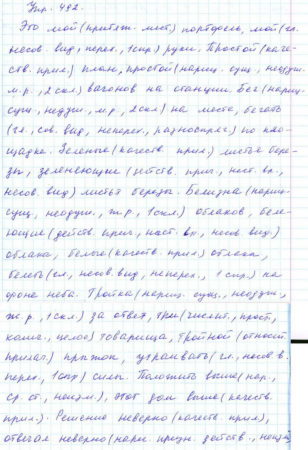 Упр. 492.
Это мой (притяж. мест.) портфель, мой (гл.
несов. вид, перех., 1 спр.) руки. Простой (каче-
ств. прил.) план, простой (нариц. сущ., неодуш.
м.р., 2 скл.) вагонов на станции. Бег (нариц.
сущ., неодуш., м.р., 2 скл.) на месте, бегать
(гл., вид, неперех., ) по пло-
щадке. Зеленые (качеств. прил.) листья бере-
зы, зеленеющие (действ. прич., наст. вр.,
несов. вид) листья березы. Белизна (нариц.
сущ., неодуш., ж.р., 1 скл.) облаков, беле-
ющие (действ. прич., наст. вр., несов. вид)
облака, белые (качеств. прил.) облака,
белеть (гл., несов. вид, неперех., 1 спр.) на
фоне неба. Тройка (нариц. сущ., неодуш.,
ж.р., 1 скл.) за ответ, три (числит., прост.,
колич., целое) товарища, тройной (относит.
прилаг.) прыжок, утраивать (гл., несов. в.
перех., 1 спр.) силы. Положить выше (нар.,
ср. ст., неизм.), этот дом выше (качеств.
прил.). Решение неверно (качеств. прил.),
отвечал неверно (нареч. действ., неизм.